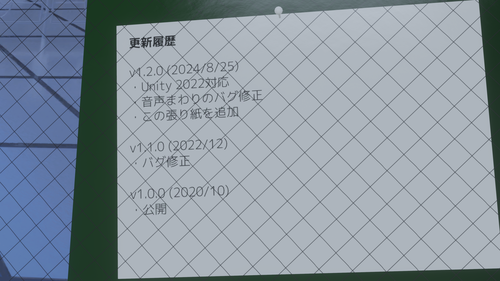 更新履歴
v1.2.0 (2024/8/25)
・Unity 2022対応
・音声まわりのバグ修正
・この張り紙を追加
v1.1.0 (2022/12)
・バグ修正
v1.0.0 (2020/10)
・公開